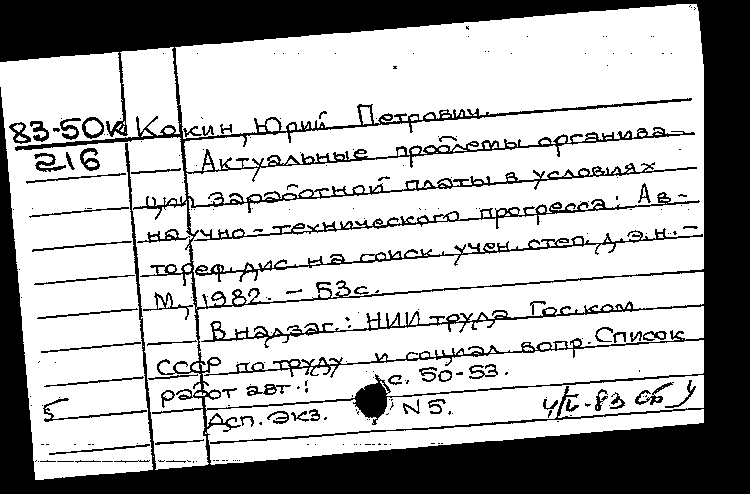 83-50к Кокин, Юрий Петрович.
216 Актуальные проблемы организа-
ции заработной платы в условиях
научно-технического прогресса: Ав-
тореф. дис. на соиск. учен. степ. д.э.н. -
М., 1982. - 53с.
В надзаг.: НИИ труда Гос. ком.
СССР по труду и социал. вопр. Список
работ авт.: с. 50-53.
5 Асп. экз. N 5.